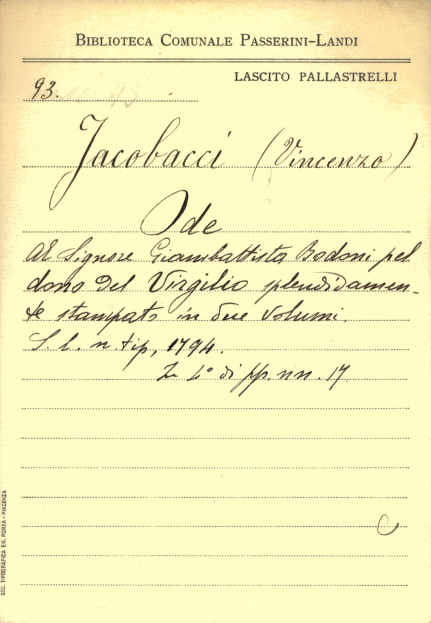 BIBLIOTECA COMUNALE PASSERINI-LANDI
LASCITO PALLASTRELLI
93.
Jacobacci (Vincenzo)
Ode
Al Signore Giambattista Bodoni pel
dono del Virgilio splendidamen-
te stampato in due volumi.
S. l. n. tip, 1794.
In 4° di pp. nn. 17.
SOC. TIPOGRAFICA ED. PORTA - PIACENZA